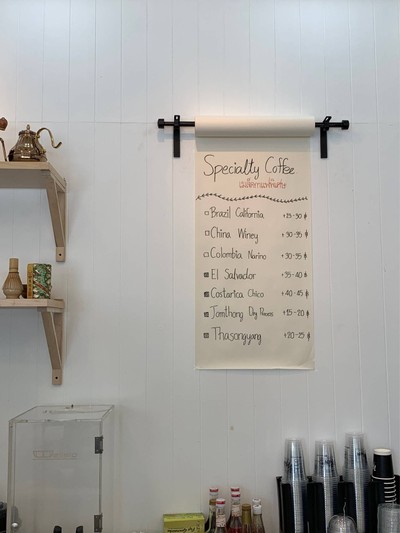 Specialty Coffee
เมล็ดกาแฟพิเศษ
Brazil California +25-30 ฿
China Winey +30-35 ฿
Colombia Narino +30-35 ฿
El Salvador +35-40 ฿
Costarica Chico +40-45 ฿
Jomthong Dry Process +15-20 ฿
Thasongyang +20-25 ฿